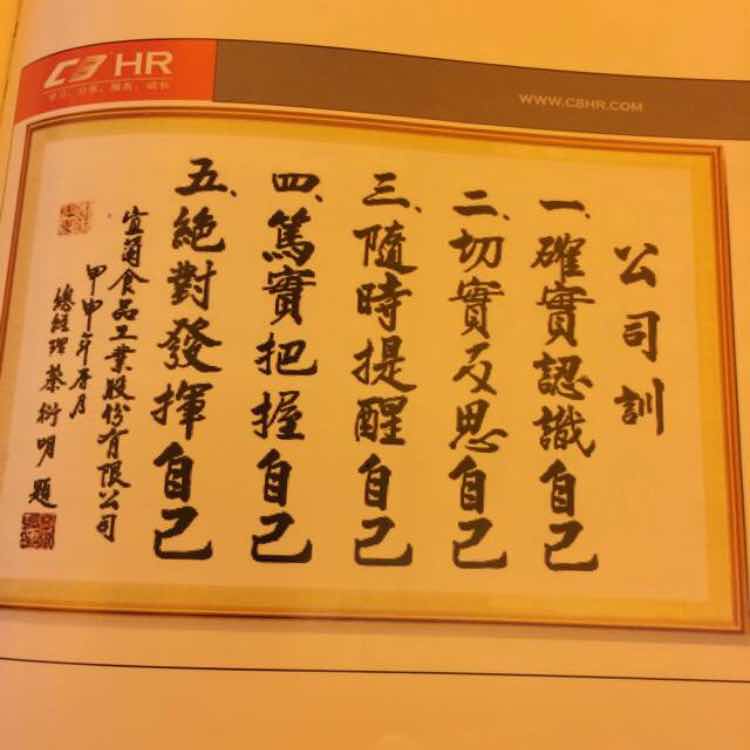 C3 HR
WWW.C8HR.COM
公司訓
一、確實認識自己
二、切實反思自己
三、隨時提醒自己
四、篤實把握自己
五、絕對發揮自己
宜蘭食品工業股份有限公司
甲申年 月
總經理 蔡衍明 題